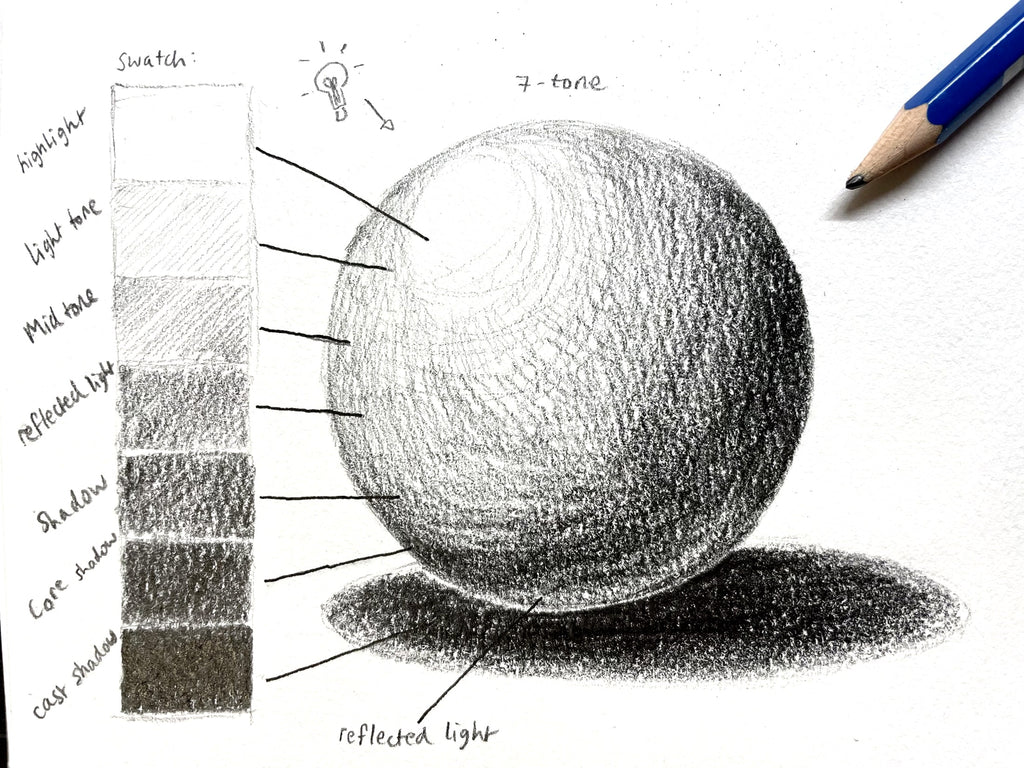 swatch:
7-tone
highlight
light tone
Mid tone
reflected light
shadow
Core shadow
cast shadow
reflected light